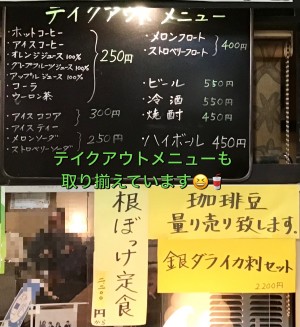 テイクアウトメニュー
・ホットコーヒー
・アイスコーヒー
・オレンジジュース100%
・グレープフルーツジュース100%
・アップルジュース100%
・コーラ
・ウーロン茶
250円
・アイスココア
・アイスティー
300円
・メロンソーダ
・ストロベリーソーダ
250円
・メロンフロート
・ストロベリーフロート
400円
・ビール 550円
・冷酒 550円
・焼酎 450円
・ハイボール 450円
テイクアウトメニューも
取り揃えています😆🥤
根ぼっけ定食
珈琲豆
量り売り致します。
銀ダライカ刺セット
2,200円